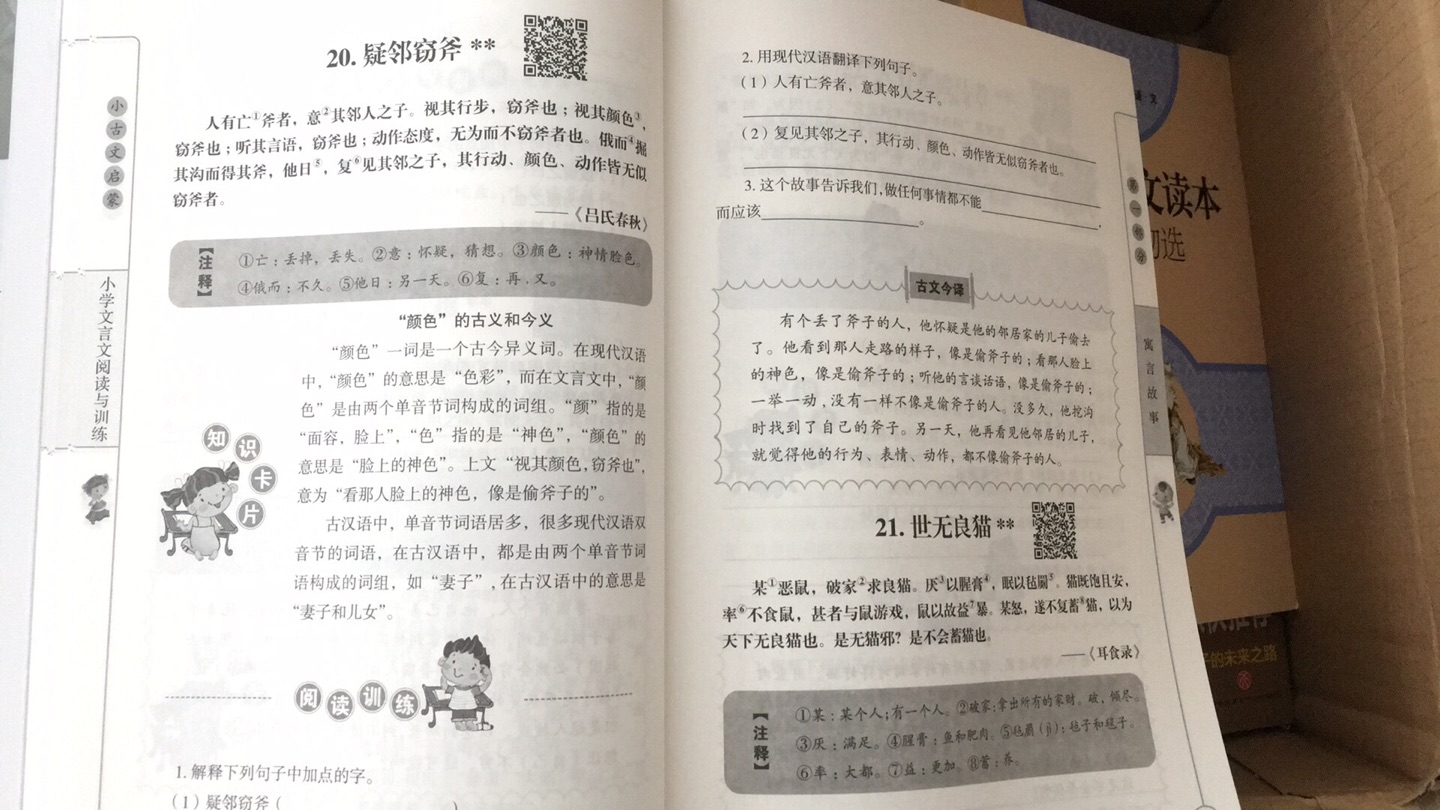 小古文启蒙
小学文言文阅读与训练
20. 疑邻窃斧 **
人有亡①斧者，意②其邻人之子。视其行步，窃斧也；视其颜色③，
窃斧也；听其言语，窃斧也；动作态度，无为而不窃斧者也。俄而④掘
其沟而得其斧，他日⑤，复⑥见其邻之子，其行动、颜色、动作皆无似
窃斧者。
——《吕氏春秋》
【注释】
①亡：丢掉，丢失。②意：怀疑，猜想。③颜色：神情脸色。
④俄而：不久。⑤他日：另一天。⑥复：再，又。
“颜色”的古义和今义
“颜色”一词是一个古今异义词。在现代汉语
中，“颜色”的意思是“色彩”，而在文言文中，“颜
色”是由两个单音节词构成的词组。“颜”指的是
“面容，脸上”，“色”指的是“神色”，“颜色”的
意思是“脸上的神色”。上文“视其颜色，窃斧也”，
意为“看那人脸上的神色，像是偷斧子的”。
古汉语中，单音节词语居多，很多现代汉语双
音节的词语，在古汉语中，都是由两个单音节词
语构成的词组，如“妻子”，在古汉语中的意思是
“妻子和儿女”。
知识卡片
阅读训练
1. 解释下列句子中加点的字。
（1）疑邻窃斧（ ）
2. 用现代汉语翻译下列句子。
（1）人有亡斧者，意其邻人之子。
（2）复见其邻之子，其行动、颜色、动作皆无似窃斧者也。
3. 这个故事告诉我们，做任何事情都不能
而应该 。
古文今译
有个丢了斧子的人，他怀疑是他的邻居家的儿子偷去
了。他看到那人走路的样子，像是偷斧子的；看那人脸上
的神色，像是偷斧子的；听他的言谈话语，像是偷斧子的；
一举一动，没有一样不像是偷斧子的人。没多久，他挖沟
时找到了自己的斧子。另一天，他再看见他邻居的儿子，
就觉得他的行为、表情、动作，都不像偷斧子的人。
21. 世无良猫 **
某①恶鼠，破家②求良猫。厌③以腥膏④，眠以毡罽⑤。猫既饱且安，
率⑥不食鼠，甚者与鼠游戏，鼠以故益⑦暴。某怒，遂不复蓄⑧猫，以为
天下无良猫也。是无猫邪？是不会蓄猫也。
——《耳食录》
【注释】
①某：某个人；有一个人。②破家：拿出所有的家财。破，倾尽。
③厌：满足。④腥膏：鱼和肥肉。⑤毡罽（jì）：毡子和毯子。
⑥率：大都。⑦益：更加。⑧蓄：养。
第一部分
寓言故事
文读本
初选
子的未来之路